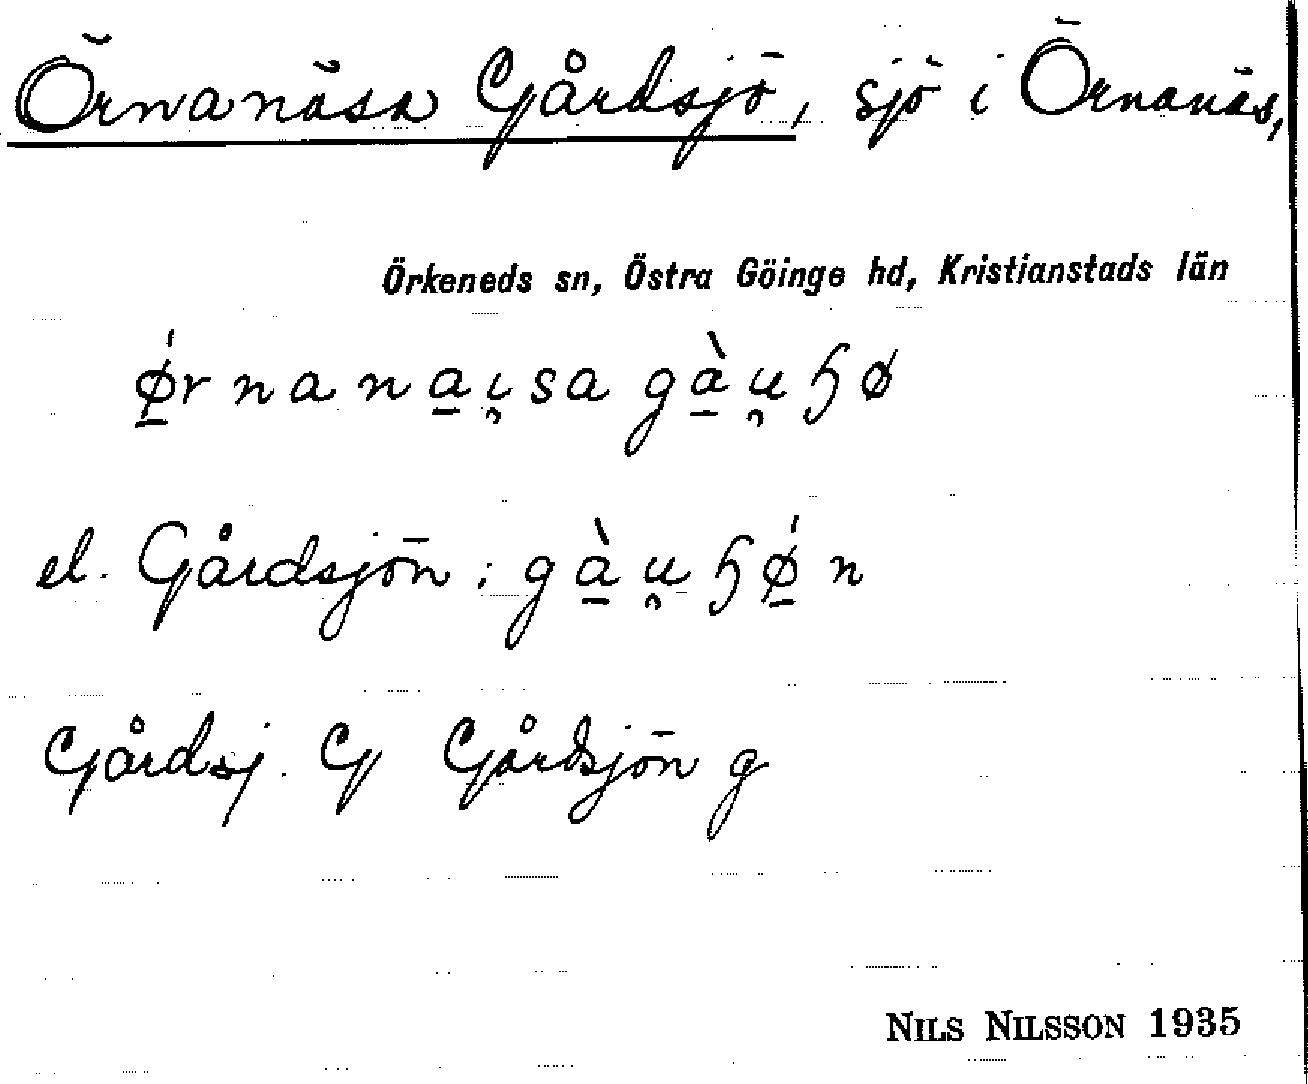 Örnanäsa Gårdsjö, sjö i Örnanäs,
Örkeneds sn, Östra Göinge hd, Kristianstads län
ǿ̠r n a n a̠ ı̯ s a g à̠ u̯ ɧ ø
el. Gårdsjön: g à̠ u̯ ɧ ǿ̠ n
Gårdsj. G Gårdsjön g
NILS NILSSON 1935